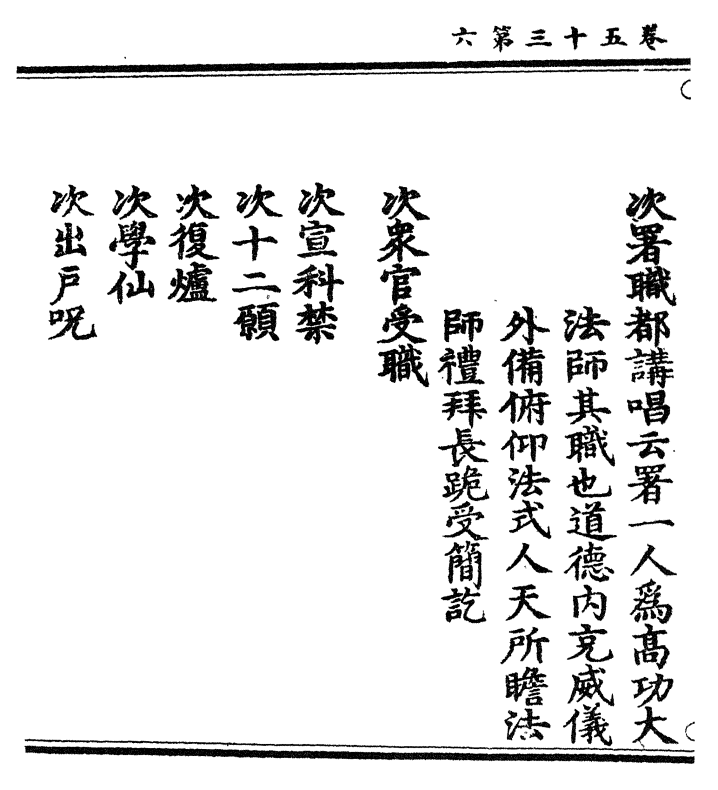 卷五十三第六
次署職都講唱云署一人爲髙功大
法師其職也道德内克威儀
外備俯仰法式人天所瞻法
師禮拜長跪受簡訖
次衆官受職
次宣科禁
次十二願
次復爐
次學仙
次出戶呪